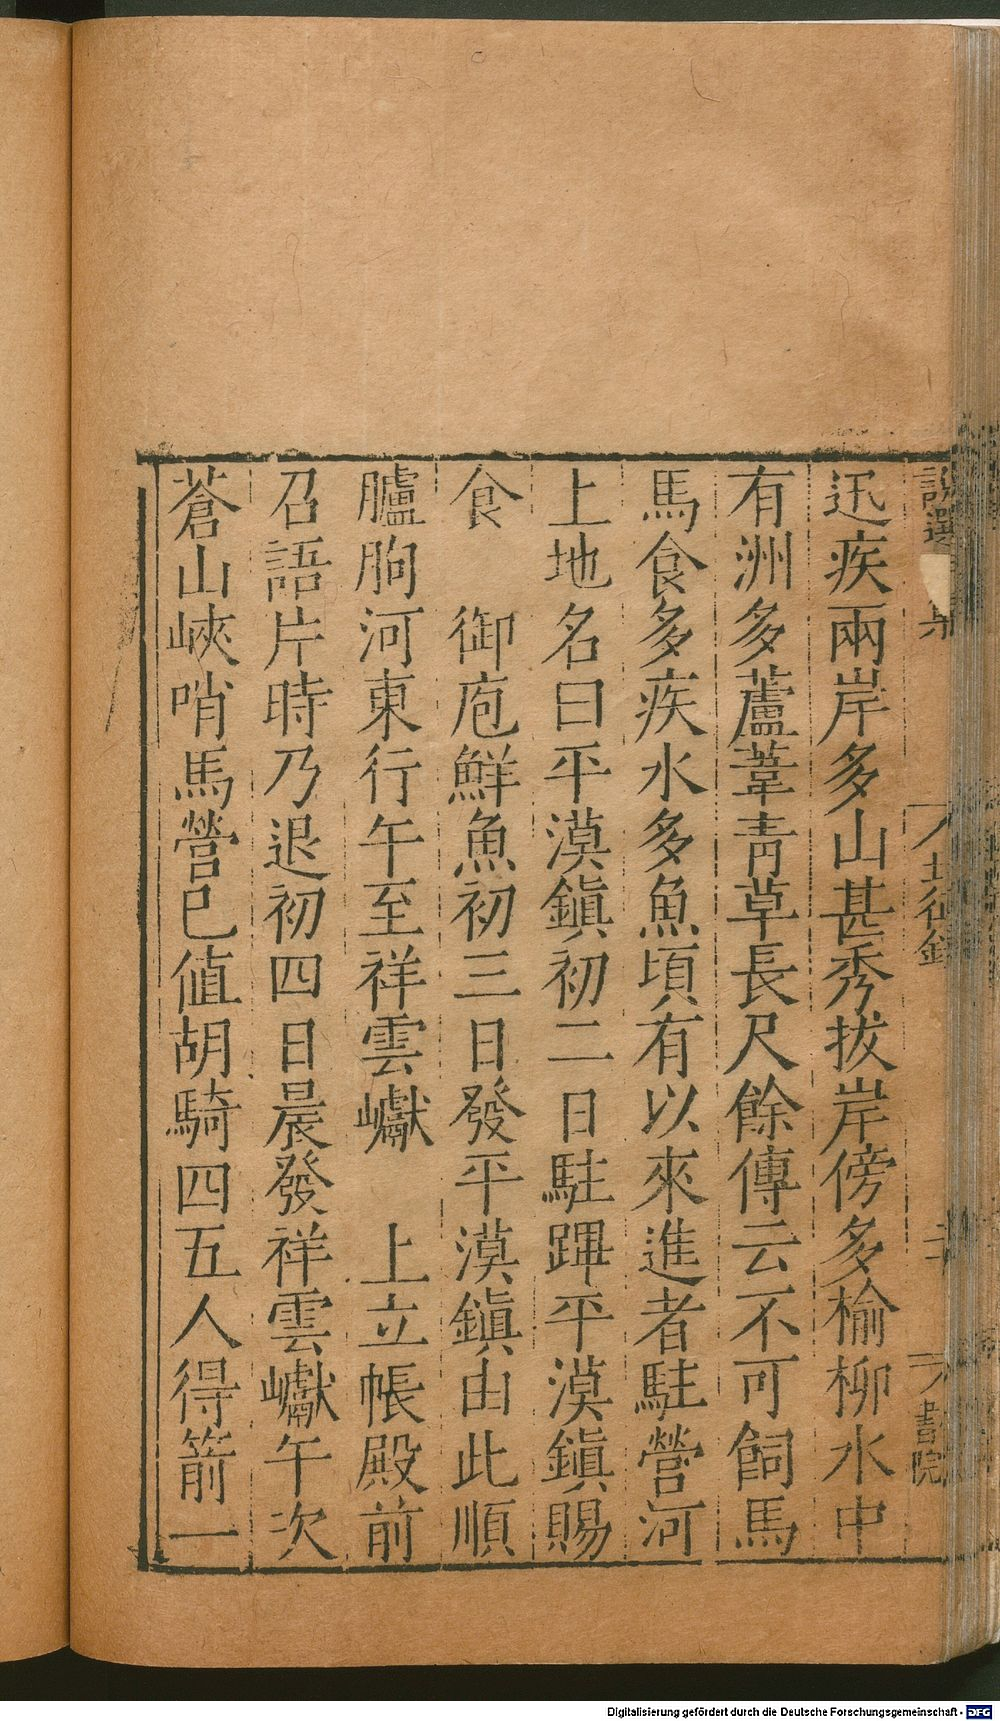 迅疾兩岸多山甚秀拔岸傍多榆柳水中
有洲多蘆葦青草長尺餘傳云不可飼馬
馬食多疾水多魚頃有以來進者駐營河
上地名曰平漠鎮初二日駐蹕平漠鎮賜
食　御庖鮮魚初三日發平漠鎮由此順
臚朐河東行午至祥雲巘　上立帳殿前
召語片時乃退初四日晨發祥雲巘午次
蒼山峽哨馬營已值胡騎四五人得箭一
書院
Digitalisierung gefördert durch die Deutsche Forschungsgemeinschaft - DFG